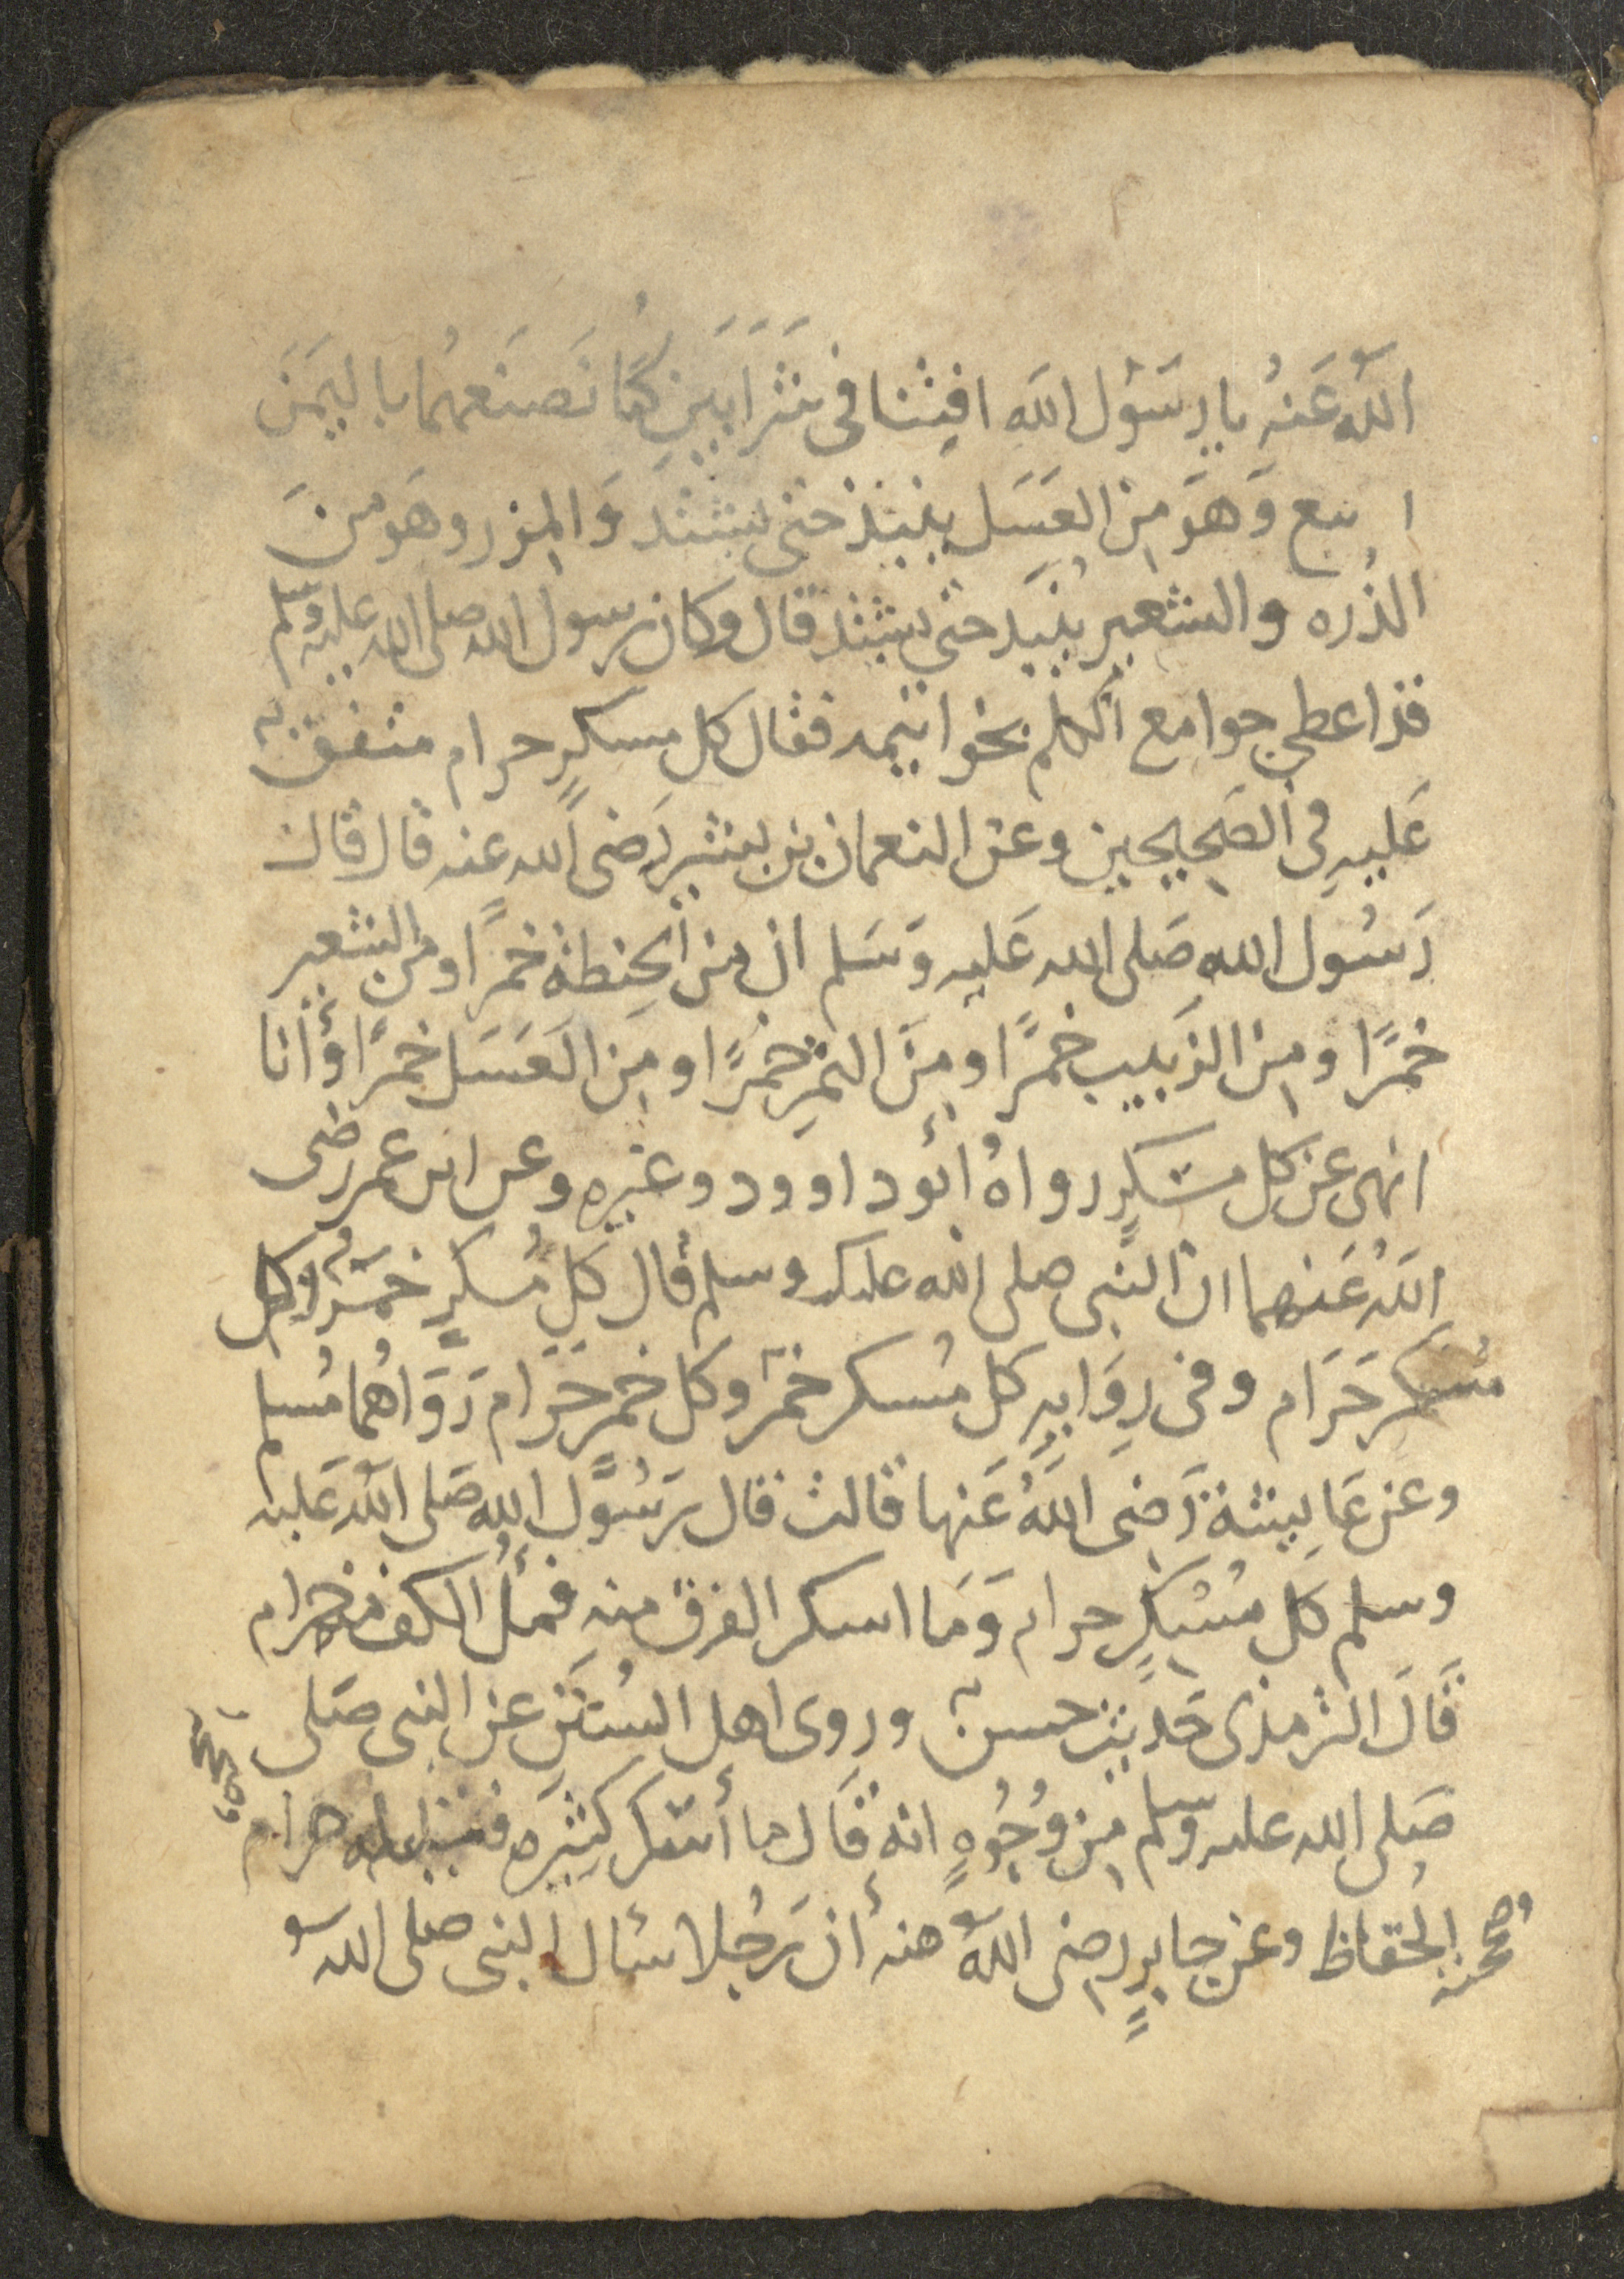 اللّٰه عَنهُ يا رسَول اللَه افِتنا فى شَرَابَينِ كُنا نَصنَعهُما باليَمَن
ا بتع وَهوَ مِن العَسَل ينبَذ حتى يشتد وَالمِزر وهَو منَ
الذُره والشعير ينبَد حتى يشتد قال وكان رسول الله صلى الله عليه وسلم
قد اعطى جوامع الكلم بخواتيمه فقال كل مسكرٍ حرام متفق
عَليهِ فى الصَحِيحين وعن النعمان بن بشيرٍ رَضى الله عنه قال قال
رَسُول الله صَلى الله عَليه وَسَلم ان مِن الحِنطة خمرًا ومن الشعير
خمرًا ومِن الزَبيب خمرًا ومِنَ التمِر خمُرًا ومِن العَسَل خمرًا وأنا
انهى عن كل مسَكرٍ رواهُ ابُو داوود وغيره وعن ابن عمر رضى
اللهُ عَنهما ان النبى صلى الله عليه وسلم قال كل مُسكرٍ خمرٌ وكل
مُسكر حَرَام وفى رِوَايهٍ كل مُسكر خمر وكل خمرٍ حَرَام رَوَاهُما مُسلم
وعن عَايِشة رَضى اللهُ عَنها قالت قال رسُول الله صَلى الله عَليه
وسلم كل مُسْكرٍ حرام وَمَا اسكر الفرق منه فملُ الكف منه حرام
قَالَ الترمذى حَديث حسنٌ وروى اهل السُنَن عن النبى صَلى
صَلى الله عليه وسلم مِن وُجُوهٍ انهُ قَال ما أسكر كثيَره فقليله حرام
وصححه الحُفاظ وعن جابرٍ رضى اللّٰهُ عنه أن رَجُلا سئال النبى صلى الله